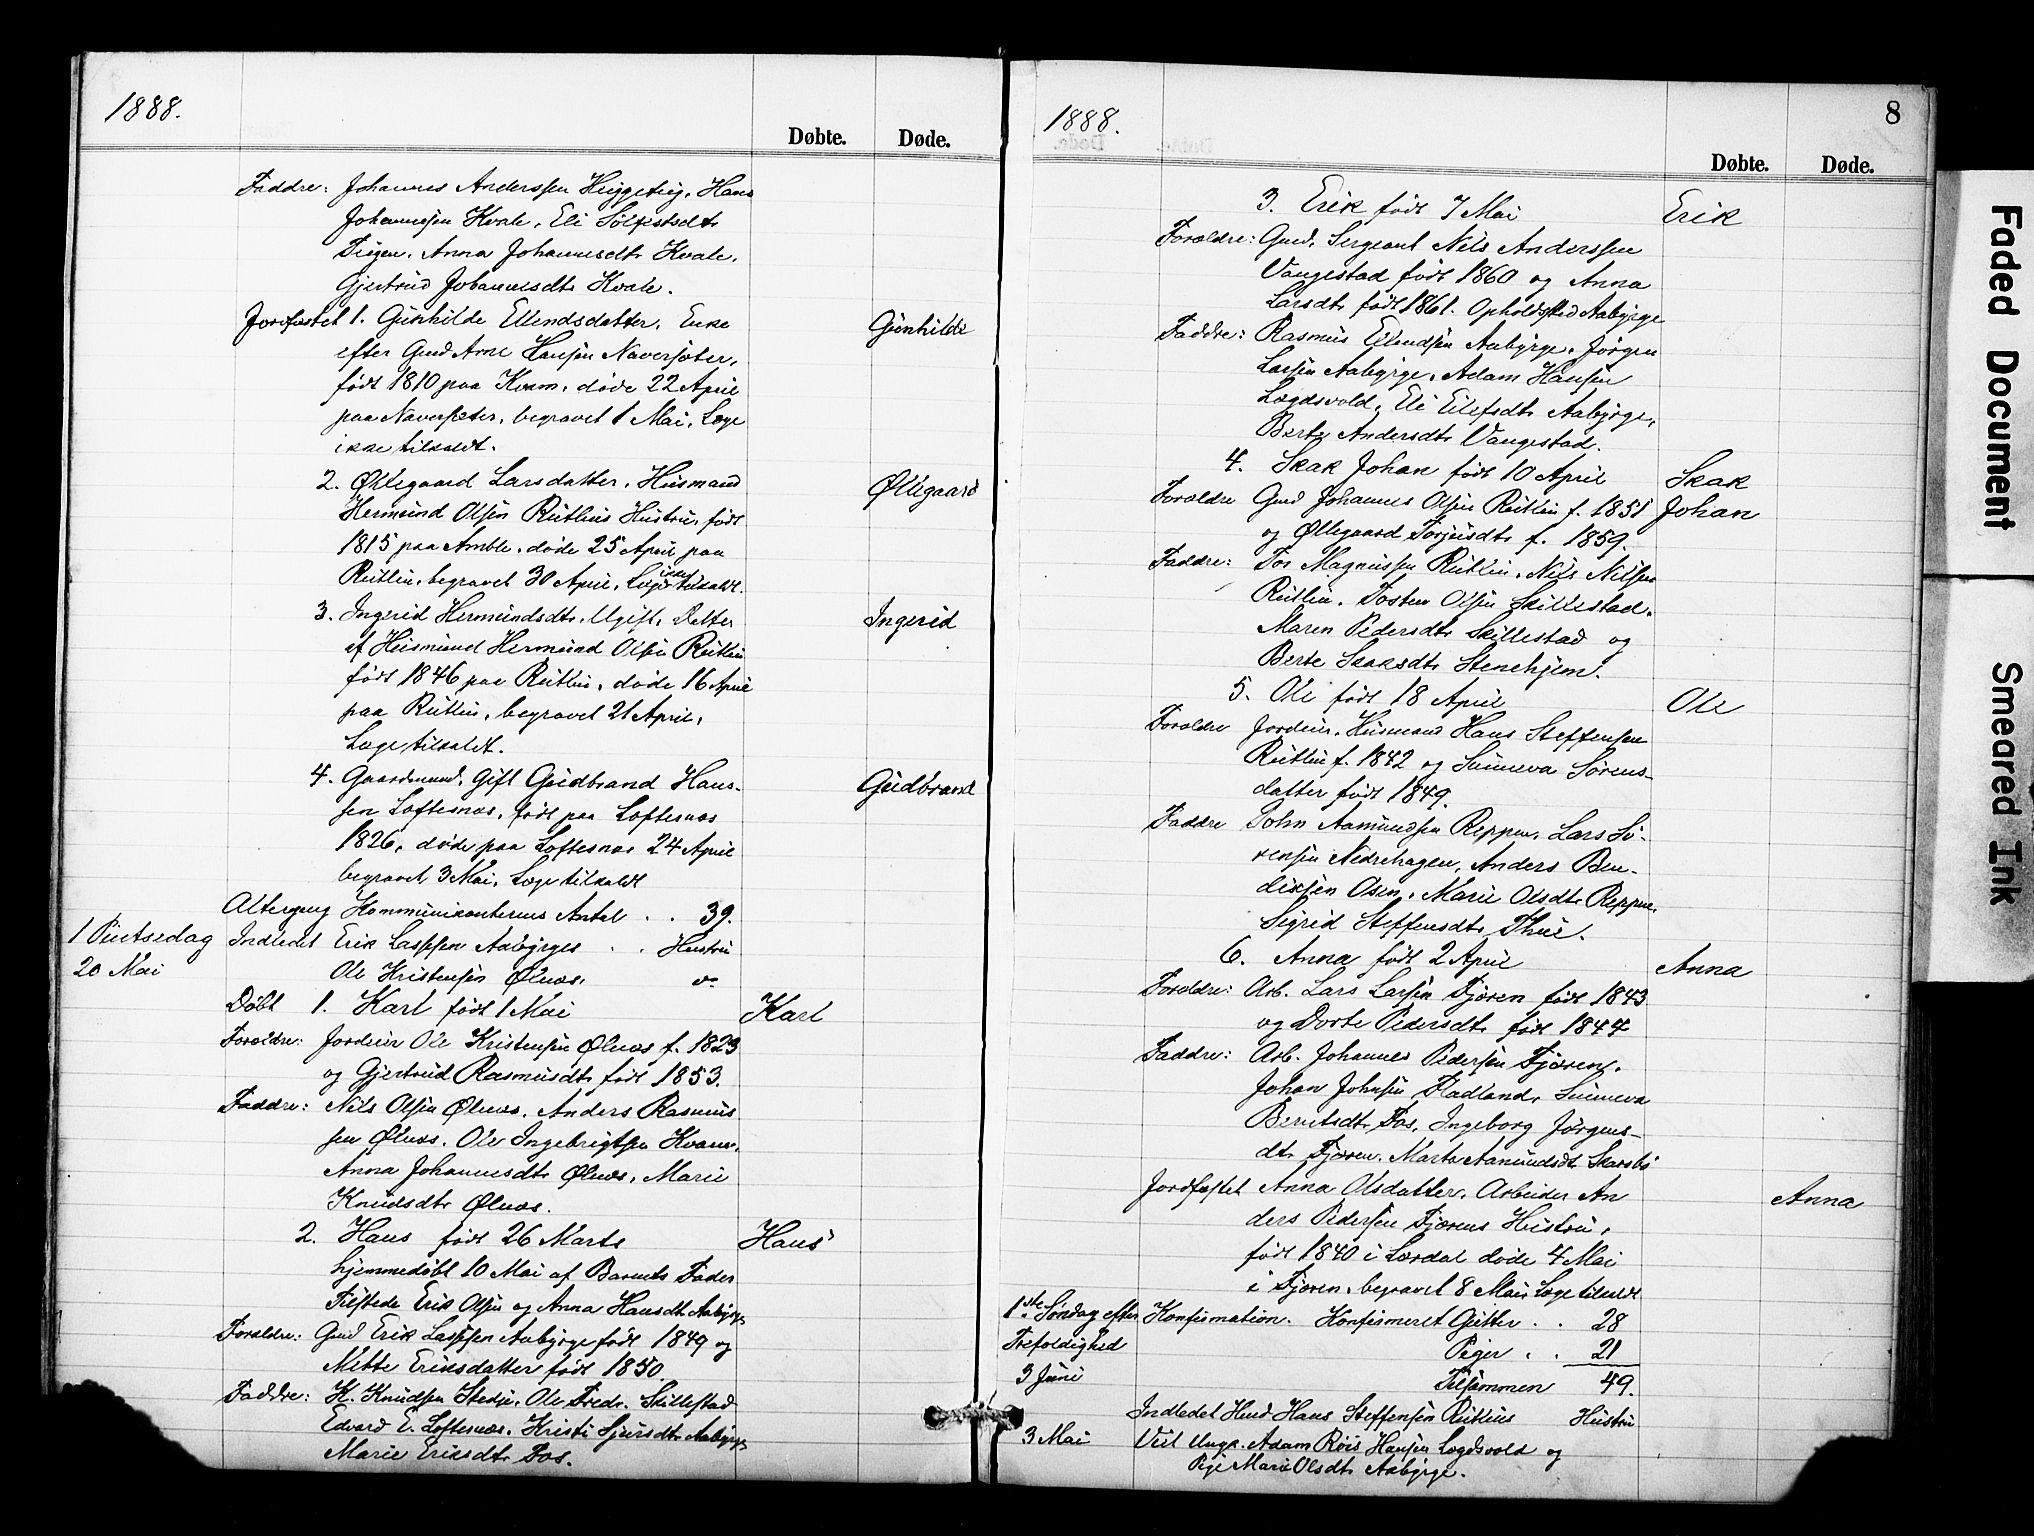 1888.
Døbte. Døde.
Faddre: Johannes Anderssen Huggeteig, Hans
Johannessen Kvale, Eli Sølfestsdt.
Fugen. Anna Johannesdt. Kvale.
Gjertrud Johannesdt. Kvale.
Jordfæstet 1. Gunhilde Ellendsdatter, Enke Gunhilde
efter Gmd Arne Hansen Naversæter,
født 1810 paa Kvam, døde 22 April
paa Naversæter, begravet 1 Mai, Læge
ikke tilkaldt.
2. Øllegaard Larsdatter, Husmand Øllegaard
Hermund Olsen Rutlins Hustru, født
1815 paa Amble, døde 25 April paa
Rutlin, begravet 30 April, Læge ikke tilkaldt.
3. Ingerid Hermundsdt. Ugift. Datter Ingerid
af Husmand Hermund Olsen Rutlin
født 1846 paa Rutlin, døde 16 April
paa Rutlin, begravet 21 April,
Læge tilkaldt.
4. Gaardmand, gift Gudbrand Hans- Gudbrand
sen Loftesnæs, født paa Loftesnæs
1826, døde paa Loftesnæs 24 April
begravet 3 Mai, Læge tilkaldt
Altergang Kommunikanternes Antal . . 39.
1 Pintsedag Indledet Erik Lasssen Aabyrges . . Hustru
20 Mai Ole Kristensen Ølnæs.
Døbt 1. Karl født 1 Mai Karl
Forældre: Jordeier Ole Kristensen Ølnæs f. 1823
og Gjertrud Rasmusdt. født 1853.
Faddre: Nils Olsen Ølnæs. Anders Rasmus
sen Ølnæs. Ole Ingebrigtsen Kvam.
Anna Johannesdt. Ølnæs, Marie
Knudsdt. Ølnæs.
2. Hans født 26 Marts Hans
hjemmedøbt 10 Mai af Barnets Fader
Tilstede Erik Olsen og Anna Hansdt. Aabyrge
Forældre: Gmd Erik Lasssen Aabyrge født 1849 og
Mette Eriksdatter født 1850.
Faddre: K. Knudsen Stedje, Ole Fredr. Skillestad
Edvard E. Loftesnæs. Kristi Sjursdt. Aabyrge
Marie Eriksdt. Fos.
1888. 8
Døbte. Døde.
3. Erik født 7 Mai Erik
Forældre: Gmd. Sergeant Nils Anderssen
Vangestad født 1860 og Anna
Larsdt. født 1861. Opholdssted Aabyrge
Faddre: Rasmus Ellendsen Aabyrge, Jørgen
Larsen Aabyrge, Adam Hansen
Lægdsvold, Eli Eilefsdt. Aabyrge,
Berte Andersdt. Vangestad.
4. Skak Johan født 10 April Skak
Forældre Gmd Johannes Olsen Rutlin f. 1851 Johan
og Øllegaard Torjusdt. f. 1859.
Faddre: Tor Magnussen Rutlin, Nils Nilssen
Rutlin. Tosten Olsen Skillestad.
Maren Pedersdt. Skillestad og
Berte Skaksdt. Stenehjem.
5. Ole født 18 April Ole
Forældre Jordeier, Husmand Hans Steffensen
Rutlin f. 1842 og Sunneva Sørens-
datter født 1849.
Faddre John Aamundsen Reppen, Lars Sø-
rensen Nedrehagen, Anders Ben-
dixsen Osen. Marie Olsdt. Reppen.
Sigrid Steffensdt. Thue.
6. Anna født 2 April Anna
Forældre: Arb. Lars Larsen Fjæren født 1843
og Dorte Pedersdt. født 1844
Faddre: Arb. Johannes Pedersen Fjæren.
Johan Johnsen Fladland, Sunneva
Berntsdt. Fos. Ingeborg Jørgens-
dt. Fjæren. Marta Aamundsdt. Skarsbø
Jordfæstet Anna Olsdatter, Arbeider An Anna
ders Pedersen Fjærens Hustru,
født 1840 i Lærdal døde 4 Mai
i Fjæren, begravet 8 Mai, Læge tilkaldt
1ste Søndag efter Konfirmation. Konfirmeret Gutter . . 28
Trefoldighed Piger . . 21
3 Juni Tilsammen 49.
Indledet Hmd Hans Steffensen Rutlins Hustru
3 Mai Viet Ungk. Adam Røis Hansen Lægdsvold og
Pige Marie Olsdt. Aabyrge.
Faded Document
Smeared Ink